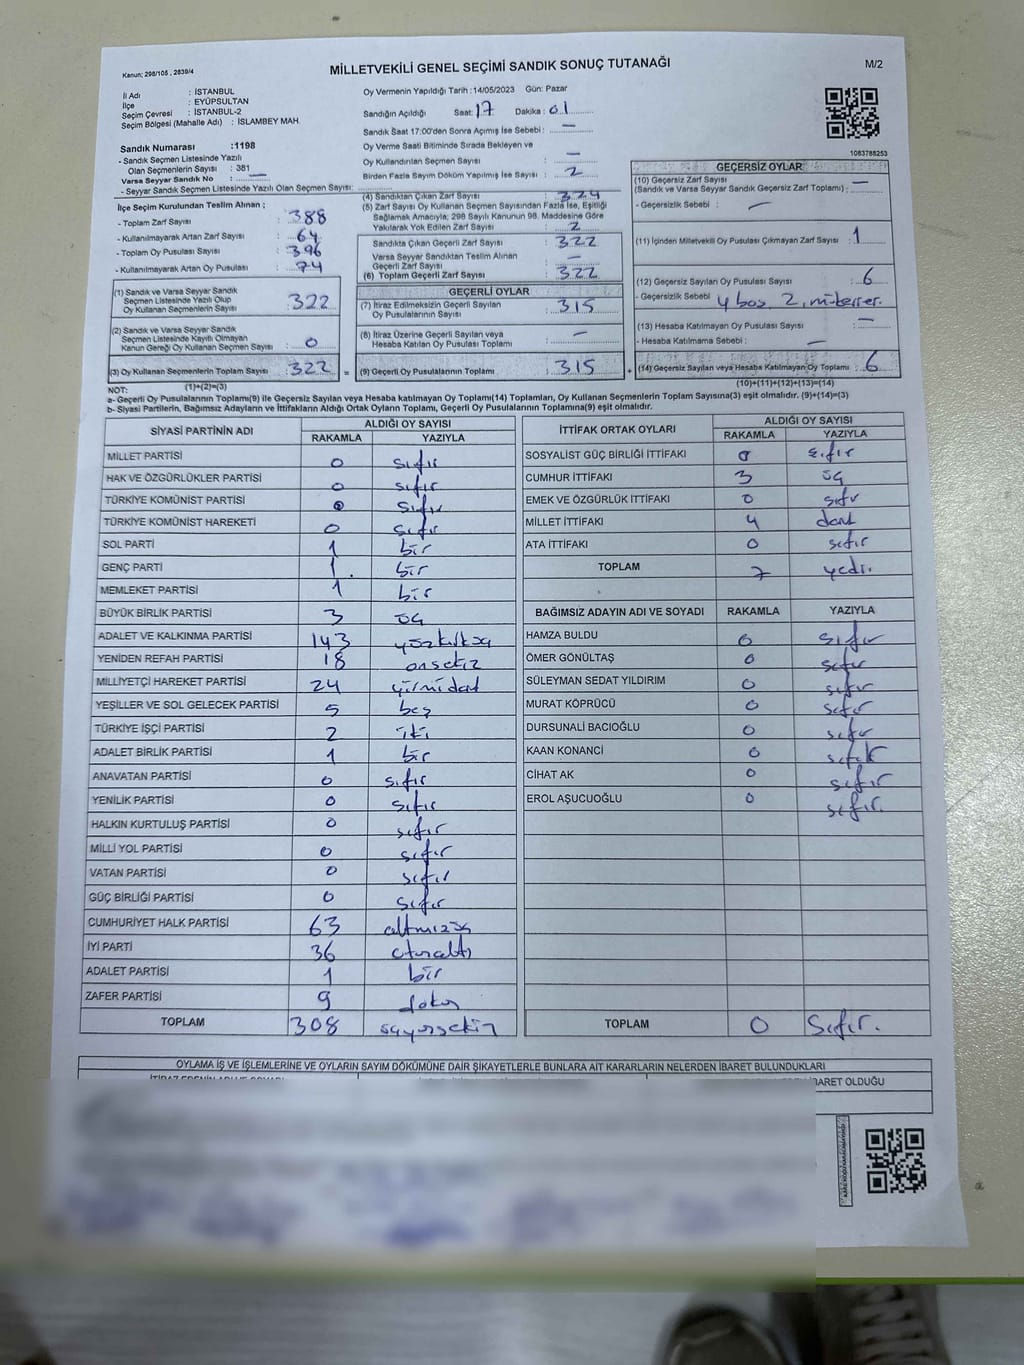 Kanun; 298/105 , 2839/4
MİLLETVEKİLİ GENEL SEÇİMİ SANDIK SONUÇ TUTANAĞI
M/2
İl Adı : İSTANBUL
İlçe : EYÜPSULTAN
Seçim Çevresi : İSTANBUL-2
Seçim Bölgesi (Mahalle Adı) : İSLAMBEY MAH.
Sandık Numarası :1198
- Sandık Seçmen Listesinde Yazılı
Olan Seçmenlerin Sayısı : 381
Varsa Seyyar Sandık No : —
- Seyyar Sandık Seçmen Listesinde Yazılı Olan Seçmen Sayısı:
Oy Vermenin Yapıldığı Tarih :14/05/2023 Gün: Pazar
Sandığın Açıldığı Saat: 17 Dakika : 01
Sandık Saat 17:00'den Sonra Açımış İse Sebebi : —
Oy Verme Saati Bitiminde Sırada Bekleyen ve
Oy Kullandırılan Seçmen Sayısı : —
Birden Fazla Sayım Döküm Yapılmış İse Sayısı : 2
1083788253
İlçe Seçim Kurulundan Teslim Alınan ;
- Toplam Zarf Sayısı : 388
- Kullanılmayarak Artan Zarf Sayısı : 64
- Toplam Oy Pusulası Sayısı : 396
- Kullanılmayarak Artan Oy Pusulası : 74
(1) Sandık ve Varsa Seyyar Sandık
Seçmen Listesinde Yazılı Olup
Oy Kullanan Seçmen Sayısı : 322
(2) Sandık ve Varsa Seyyar Sandık
Seçmen Listesinde Kayıtlı Olmayan
Kanun Gereği Oy Kullanan Seçmen Sayısı : 0
(3) Oy Kullanan Seçmenlerin Toplam Sayısı : 322 =
(4) Sandıktan Çıkan Zarf Sayısı : 324
(5) Zarf Sayısı Oy Kullanan Seçmen Sayısından Fazla İse, Eşitliği
Sağlamak Amacıyla; 298 Sayılı Kanunun 98. Maddesine Göre
Yakılarak Yok Edilen Zarf Sayısı : 2
Sandıkta Çıkan Geçerli Zarf Sayısı : 322
Varsa Seyyar Sandıktan Teslim Alınan
Geçerli Zarf Sayısı : —
(6) Toplam Geçerli Zarf Sayısı : 322
GEÇERLİ OYLAR
(7) İtiraz Edilmeksizin Geçerli Sayılan
Oy Pusulalarının Sayısı : 315
(8) İtiraz Üzerine Geçerli Sayılan veya
Hesaba Katılan Oy Pusulası Toplamı : —
(9) Geçerli Oy Pusulalarının Toplamı : 315 +
GEÇERSİZ OYLAR
(10) Geçersiz Zarf Sayısı
(Sandık ve Varsa Seyyar Sandık Geçersiz Zarf Toplamı) : —
- Geçersizlik Sebebi : —
(11) İçinden Milletvekili Oy Pusulası Çıkmayan Zarf Sayısı : 1
(12) Geçersiz Sayılan Oy Pusulası Sayısı : 6
- Geçersizlik Sebebi : 4 boş 2 mükerrer.
(13) Hesaba Katılmayan Oy Pusulası Sayısı : —
- Hesaba Katılmama Sebebi : —
(14) Geçersiz Sayılan veya Hesaba Katılmayan Oy Toplamı : 6
NOT: (1)+(2)=(3)
(10)+(11)+(12)+(13)=(14)
a- Geçerli Oy Pusulalarının Toplamı(9) ile Geçersiz Sayılan veya Hesaba katılmayan Oy Toplamı(14) Toplamları, Oy Kullanan Seçmenlerin Toplam Sayısına(3) eşit olmalıdır. (9)+(14)=(3)
b- Siyasi Partilerin, Bağımsız Adayların ve İttifakların Aldığı Ortak Oyların Toplamı, Geçerli Oy Pusulalarının Toplamına(9) eşit olmalıdır.
SİYASİ PARTİNİN ADI ALDIĞI OY SAYISI
RAKAMLA YAZIYLA
MİLLET PARTİSİ 0 sıfır
HAK VE ÖZGÜRLÜKLER PARTİSİ 0 sıfır
TÜRKİYE KOMÜNİST PARTİSİ 0 sıfır
TÜRKİYE KOMÜNİST HAREKETİ 0 sıfır
SOL PARTİ 1 bir
GENÇ PARTİ 1. bir
MEMLEKET PARTİSİ 1 bir
BÜYÜK BİRLİK PARTİSİ 3 üç
ADALET VE KALKINMA PARTİSİ 143 yüzkırküç
YENİDEN REFAH PARTİSİ 18 onsekiz
MİLLİYETÇİ HAREKET PARTİSİ 24 yirmidört
YEŞİLLER VE SOL GELECEK PARTİSİ 5 beş
TÜRKİYE İŞÇİ PARTİSİ 2 iki
ADALET BİRLİK PARTİSİ 1 bir
ANAVATAN PARTİSİ 0 sıfır
YENİLİK PARTİSİ 0 sıfır
HALKIN KURTULUŞ PARTİSİ 0 sıfır
MİLLİ YOL PARTİSİ 0 sıfır
VATAN PARTİSİ 0 sıfır
GÜÇ BİRLİĞİ PARTİSİ 0 sıfır
CUMHURİYET HALK PARTİSİ 63 altmışüç
İYİ PARTİ 36 otuzaltı
ADALET PARTİSİ 1 bir
ZAFER PARTİSİ 9 dokuz
TOPLAM 308 üçyüzsekiz
İTTİFAK ORTAK OYLARI ALDIĞI OY SAYISI
RAKAMLA YAZIYLA
SOSYALİST GÜÇ BİRLİĞİ İTTİFAKI 0 sıfır
CUMHUR İTTİFAKI 3 üç
EMEK VE ÖZGÜRLÜK İTTİFAKI 0 sıfır
MİLLET İTTİFAKI 4 dört
ATA İTTİFAKI 0 sıfır
TOPLAM 7 yedi.
BAĞIMSIZ ADAYIN ADI VE SOYADI RAKAMLA YAZIYLA
HAMZA BULDU 0 sıfır
ÖMER GÖNÜLTAŞ 0 sıfır
SÜLEYMAN SEDAT YILDIRIM 0 sıfır
MURAT KÖPRÜCÜ 0 sıfır
DURSUNALİ BACIOĞLU 0 sıfır
KAAN KONANCİ 0 sıfır
CİHAT AK 0 sıfır
EROL AŞUCUOĞLU 0 sıfır.
TOPLAM 0 Sıfır.
OYLAMA İŞ VE İŞLEMLERİNE VE OYLARIN SAYIM DÖKÜMÜNE DAİR ŞİKAYETLERLE BUNLARA AİT KARARLARIN NELERDEN İBARET BULUNDUKLARI
İBARET OLDUĞU